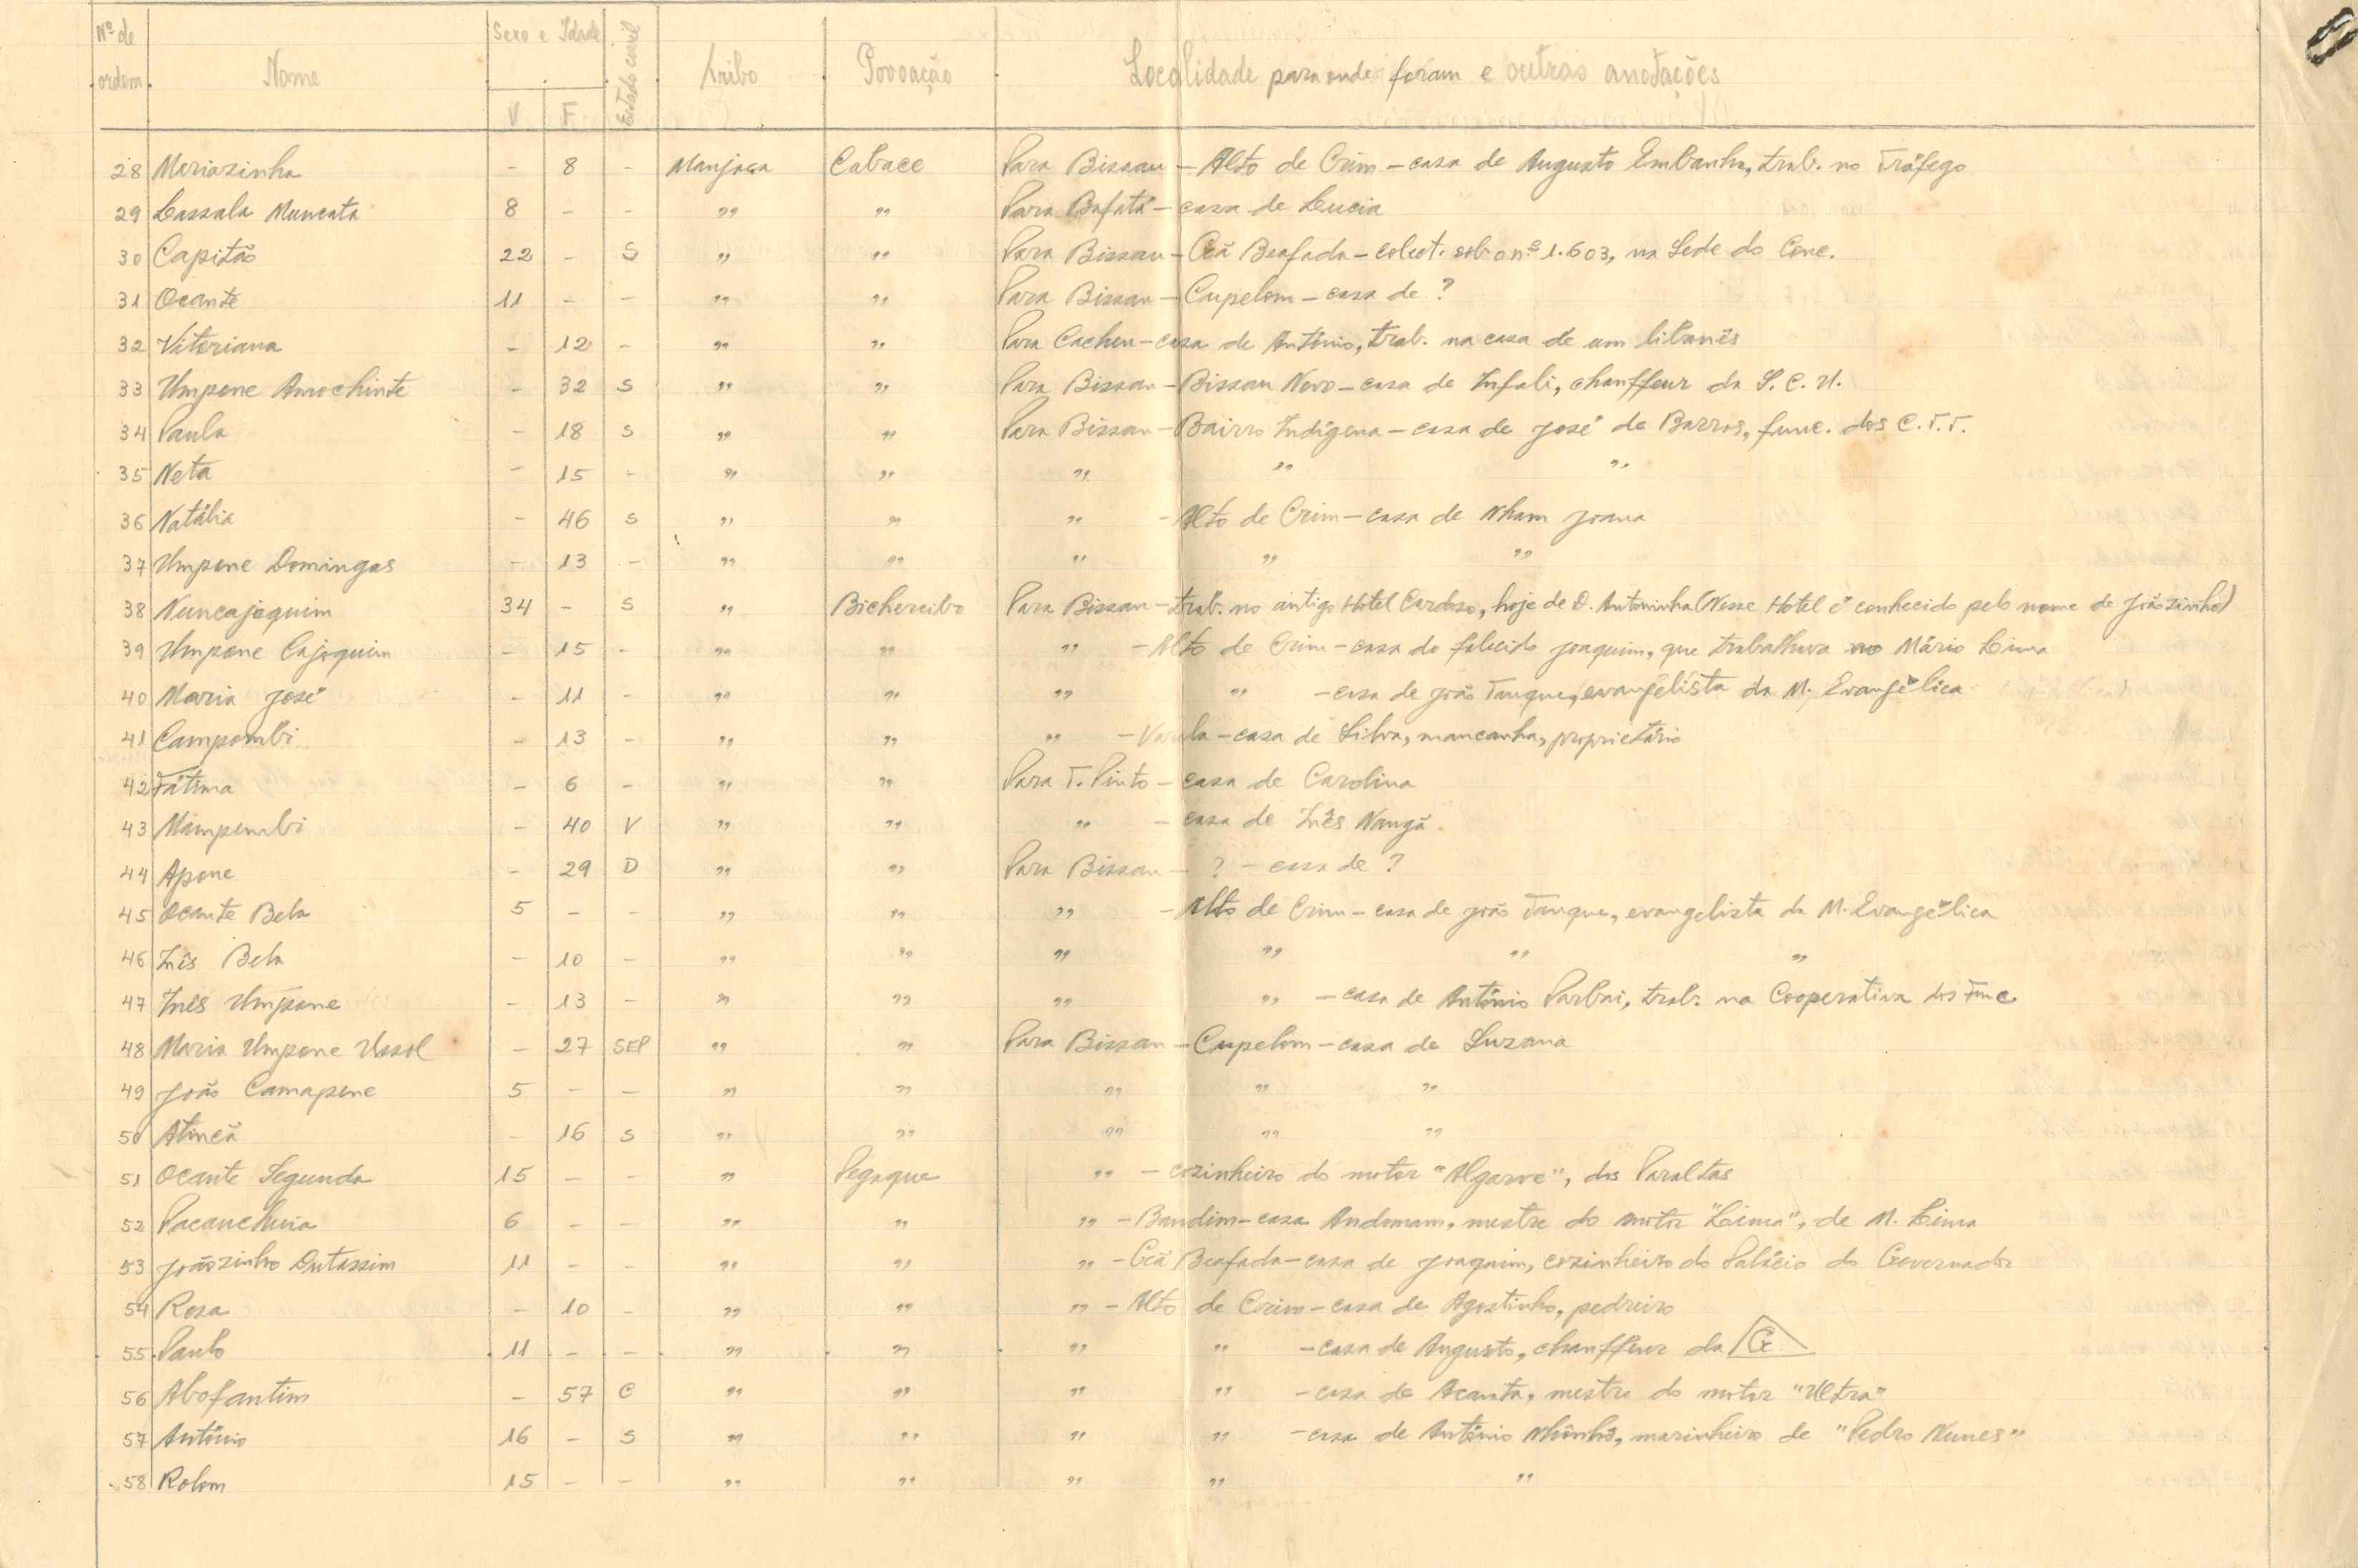 Nº de ordem | Nome | Sexo e Idade V F | Estado civil | Tribo | Povoação | Localidade para onde foram e outras anotações
28 Mariazinha - 8 - Manjaca Cabace Para Bissau - Alto de Crim - casa de Augusto Embanha, trab. no Tráfego
29 Lassala Muncata 8 - - " " Para Bafatá - casa de Lucia
30 Capitão 22 - S " " Para Bissau - Ocã Beafada - colect. sob o nº 1.603, na Sede do Conc.
31 Ocante 11 - - " " Para Bissau - Cupelom - casa de ?
32 Vitoriana - 12 - " " Para Cacheu - casa de António, trab. na casa de um libanês
33 Umpone Amochinte - 32 S " " Para Bissau - Bissau Novo - casa de Infali, chauffeur da S. C. U.
34 Paula - 18 S " " Para Bissau - Bairro Indígena - casa de José de Barros, func. dos C.T.T.
35 Neta - 15 - " " " " "
36 Natália - 46 S " " " - Alto de Crim - casa de Nham Joana
37 Umpone Domingas - 13 - " " " " "
38 Nuncajoquim 34 - S " Bichercibo Para Bissau - trab. no antigo Hotel Cardoso, hoje de D. Antoninha (Nesse Hotel é conhecido pelo nome de Joãozinho)
39 Umpone Cajoquim - 15 - " " " - Alto de Crim - casa do falecido Joaquim, que trabalhava no Mário Lima
40 Maria José - 11 - " " " " - casa de João Tanque, evangelista da M. Evangélica
41 Campombi - 13 - " " " - Varela - casa de Silva, mancanha, proprietário
42 Fátima - 6 - " " Para T. Pinto - casa de Carolina
43 Mampembi - 40 V " " " - casa de Inês Nangã
44 Apone - 29 D " " Para Bissau - ? - casa de ?
45 Ocante Bela 5 - - " " " - Alto de Crim - casa de João Tanque, evangelista da M. Evangélica
46 Inês Bela - 10 - " " " " " "
47 Inês Umpone - 13 - " " " " - casa de António Parbai, trab. na Cooperativa dos Func.
48 Maria Umpone Ussol - 27 SEP " " Para Bissau - Cupelom - casa de Suzana
49 João Camapene 5 - - " " " " "
50 Atincã - 16 S " " " " "
51 Ocante Segunda 15 - - " Pegaque " - cozinheiro do motor "Algarve", dos Paraltas
52 Pacanchuia 6 - - " " " - Bandim - casa Andomam, mestre do motor "Lima", de M. Lima
53 Joãozinho Dutassim 11 - - " " " - Ocã Beafada - casa de Joaquim, cozinheiro do Palácio do Governador
54 Rosa - 10 - " " " - Alto de Crim - casa de Agostinho, pedreiro
55 Paulo 11 - - " " " " - casa de Augusto, chauffeur da G
56 Abofantim - 57 C " " " " - casa de Acanta, mestre do motor "Ultra"
57 António 16 - S " " " " - casa de António Nhinhô, marinheiro de "Pedro Nunes"
58 Rolom 15 - - " " " " "